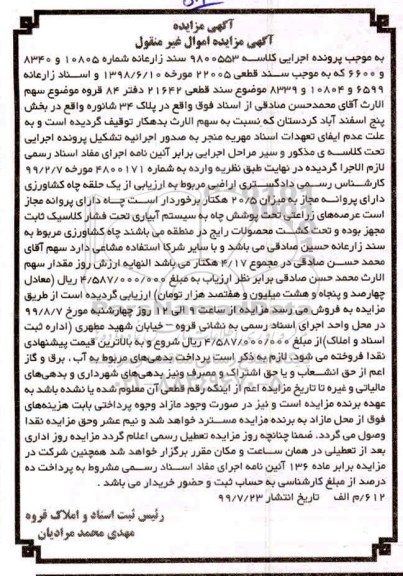 آگهی مزایده
آگهی مزایده اموال غیر منقول
به موجب پرونده اجرایی کلاسه ۹۸۰۰۵۵۳ سند زارعانه شماره ۱۰۸۰۵ و ۸۳۴۰
و ۶۶۰۰ که به موجب سند قطعی ۲۲۰۰۵ مورخه ۱۳۹۸/۶/۱۰ و اسناد زارعانه
۶۵۹۹ و ۱۰۸۰۴ و ۸۳۳۹ موضوع سند قطعی ۲۱۶۴۲ دفتر ۸۴ قروه موضوع سهم
الارث آقای محمدحسن صادقی از اسناد فوق واقع در پلاک ۳۴ شانوره واقع در بخش
پنج اسفند آباد کردستان که نسبت به سهم الارث بدهکار توقیف گردیده است و به
علت عدم ایفای تعهدات اسناد مهریه منجر به صدور اجرائیه تشکیل پرونده اجرایی
تحت کلاسه ی مذکور و سیر مراحل اجرایی برابر آئین نامه اجرای مفاد اسناد رسمی
لازم الاجرا گردیده در نهایت طبق نظریه وارده به شماره ۴۸۰۰۱۷۱ مورخه ۹۹/۲/۷
کارشناس رسمی دادگستری اراضی مربوط به ارزیابی از یک حلقه چاه کشاورزی
دارای پروانه مجاز به میزان ۲۰/۵ هکتار برخوردار است چاه دارای پروانه مجاز
است عرصه‌های زراعتی تحت پوشش چاه به سیستم آبیاری تحت فشار کلاسیک ثابت
مجهز بوده و تحت کشت محصولات رایج در منطقه می باشند چاه کشاورزی مربوط به
سند زارعانه حسین صادقی می باشد و با سایر شرکا استفاده مشاعی دارد سهم آقای
محمد حسن صادقی در مجموع ۴/۱۷ هکتار می باشد النهایه ارزش روز مقدار سهم
الارث محمد حسن صادقی برابر نظر ارزیاب به مبلغ ۴/۵۸۷/۰۰۰/۰۰۰ ریال (معادل
چهارصد و پنجاه و هشت میلیون و هفتصد هزار تومان) ارزیابی گردیده است از طریق
مزایده به فروش می رسد مزایده از ساعت ۹ الی ۱۲ روز چهارشنبه مورخ ۹۹/۸/۷
در محل واحد اجرای اسناد رسمی به نشانی قروه – خیابان شهید مطهری (اداره ثبت
اسناد و املاک) از مبلغ ۴/۵۸۷/۰۰۰/۰۰۰ ریال شروع و به بالاترین قیمت پیشنهادی
نقدا فروخته می شود: لازم به ذکر است پرداخت بدهی‌های مربوط به آب ، برق و گاز
اعم از حق انشعاب و یا حق اشتراک و مصرف ونیز بدهی‌های شهرداری و بدهی‌های
مالیاتی و غیره تا تاریخ مزایده اعم از اینکه رقم قطعی آن معلوم شده یا نشده باشد به
عهده برنده مزایده است و نیز در صورت وجود مازاد وجوه پرداختی بابت هزینه‌های
فوق از محل مازاد به برنده مزایده مسترد خواهد شد و نیم عشر وحق مزایده نقدا
وصول می گردد. ضمنا چنانچه روز مزایده تعطیل رسمی اعلام گردد مزایده روز اداری
بعد از تعطیلی در همان ساعت و مکان مقرر برگزار خواهد شد همچنین شرکت در
مزایده برابر ماده ۱۳۶ آئین نامه اجرای مفاد اسناد رسمی مشروط به پرداخت ده
درصد از مبلغ کارشناسی به حساب ثبت و حضور خریدار می باشد .
۶۱۲/م الف تاریخ انتشار ۹۹/۷/۲۳
رئیس ثبت اسناد و املاک قروه
مهدی محمد مرادیان